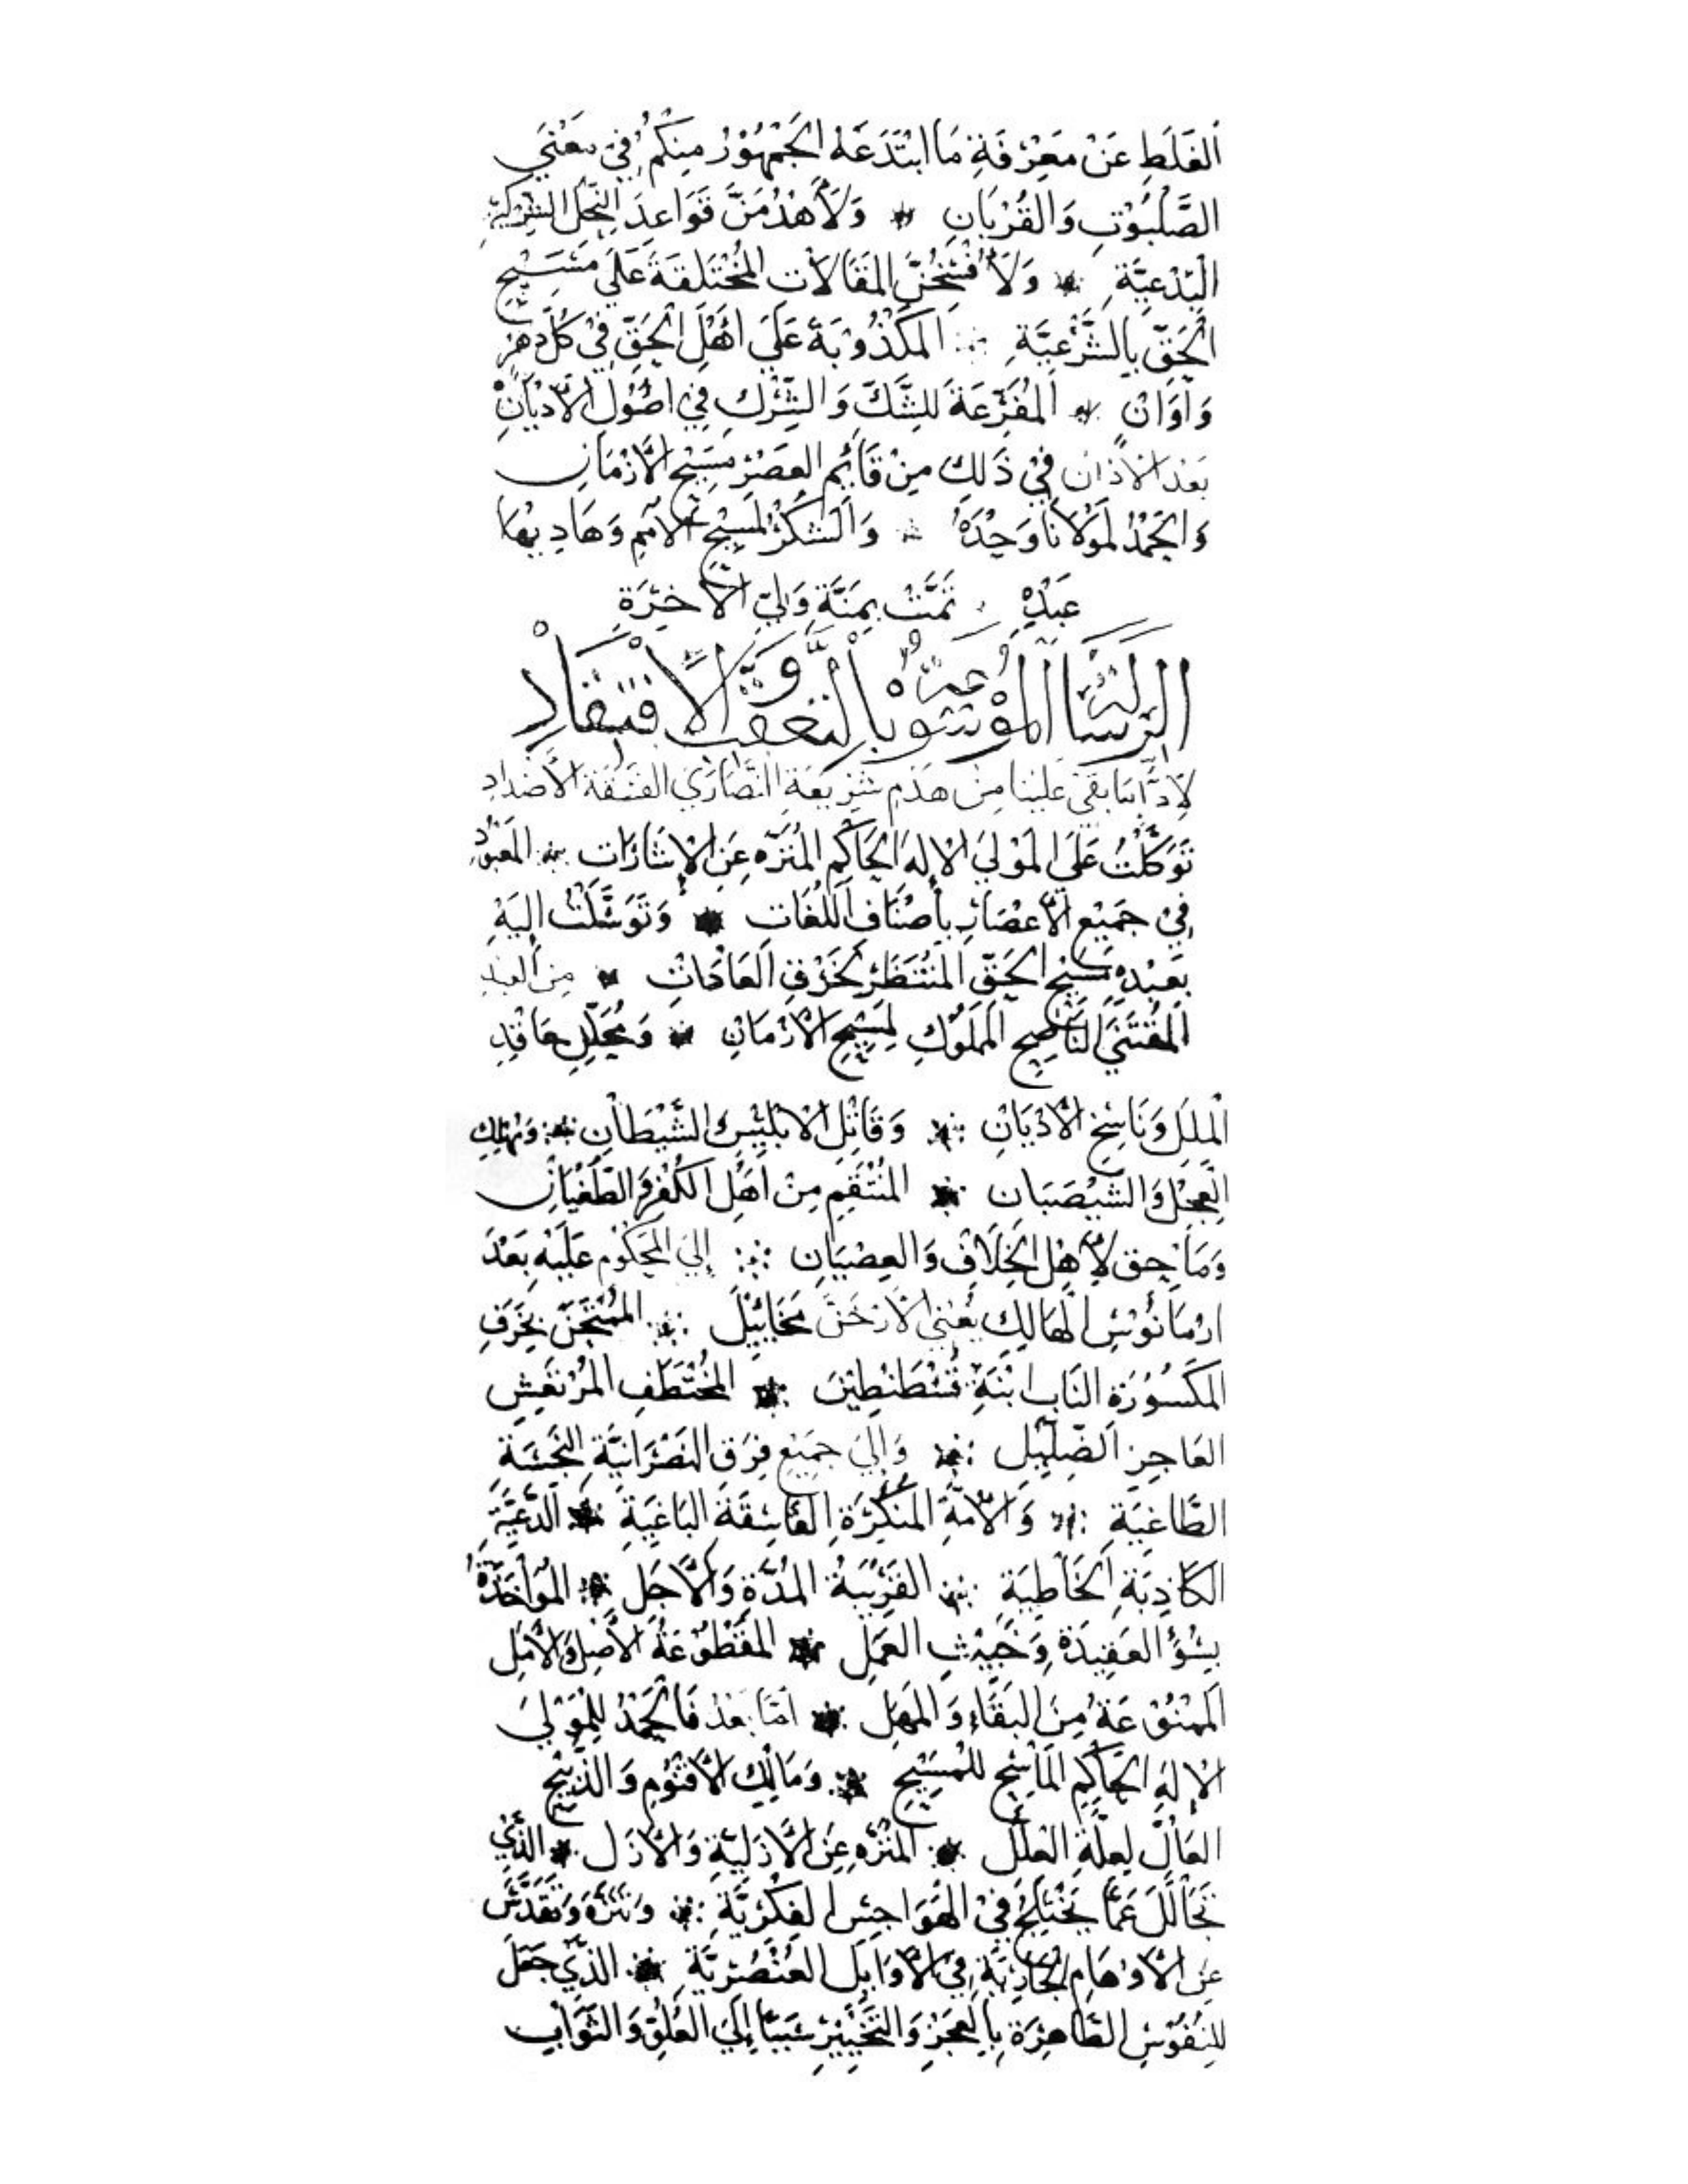 اَلغَلَطِ عَنْ مَعْرِفَةِ مَا ابْتَدَعَهُ الجَمْهُوْرُ مِنكُمُ فِيْ مَعْنَي
الصَّلَبُوْتِ وَالقُرْبَانِ * وَلَأَهْدُمَنَّ قَوَاعِدَ النِّحَلِ الشِّرْكِيَّةِ
الْبِدْعِيَّةِ * وَلَأَفْسَخُنَّ المَقَالَاتِ المُخْتَلَقَةَ عَلَي مَسِيْحِ
الْحَقِّ بِالشَّرْعِيَّةِ ∴ اَلمَكْذُوْبَةَ عَلَي أَهْلِ الْحَقِّ فِيْ كُلِّ دَهْرٍ
وَأَوَانٍ * اَلمُفَرِّعَةَ لِلشَّكِّ وَالشِّرْكِ فِيْ اصُوْلِ الأَدْيَانِ
بَعْدَ الأذَان فِيْ ذَلِكَ مِنْ قَائِمِ العَصْرِ مَسِيْحِ الأَزْمَانِ
وَالحَمْدُ لِمَوْلَانَا وَحْدَهُ * وَالشُكْرُ لِمَسِيْحِ الأُمَمِ وَهَادِيْهَا
عَبْدِهِ تَمَّتْ بِمَنَّةِ وَلِيِّ الآخِرَةِ
الرِّسَالَةُ المَوْسُوْمَةُ بِالتَعَقُّبِ وَالاِفْتِقَادِ
لِأَدَآءِ مَا بَقِيَ عَلَيْنَا مِنْ هَدْمِ شَرِيْعَةِ النَّصَارَي الفَسَقَةِ الأَضْدَادِ
تَوَكَّلْتُ عَلَي المَوْلَي الإِلهِ الحَاكِمِ المُنَزَّهِ عَنِ الإِشَارَاتِ * المَعْبُوْدِ
فِيْ جَمِيْعِ الأَعْصَارِ بِأَصْنَافِ اَللُّغَاتِ * وَتَوَسَّلْتُ إِلَيْهِ
بِعَبْدِهِ مَسِيْحِ الحَقِّ المُنْتَظَرِ لِخَرْقِ العَادَاتِ * مِنَ العَبْدِ
اَلمُقْتَنَي النَّاصِحِ المَمْلُوْكِ لِمَسِيْحِ الأَزْمَانِ * وَمُحَلِّلِ عَاقِدِ
اَلمِلَلِ وَنَاسِخِ الأَدْيَانِ ∴ وَقَاتِلِ الابْلِيْسِ الشَّيْطَانِ ∴ وَمُهْلِكِ
الْعِجْلِ وَالشَيْصَبَانِ * المُنْتَقِمِ مِنْ أَهْلِ الكُفْرِ وَالطُّغْيَانِ
وَمَاحِقِ لأَهْلِ الخِلَافِ وَالعِصْيَانِ ∴ إِلَي المَحْكُوْمِ عَلَيْهِ بَعْدَ
ارْمَانُوْسِ الهَالِكِ يُعْنَي الأَرْخَن مَخَائِيْلَ ∴ المُمْتَحَنِ بِخَرَفِ
المَكْسُوْرَةِ النَابِ ابْنَةِ قُسْطَنْطِيْنَ ∴ المُخْتَطَفِ المُرْتَعِشِ
العَاجِزِ الضِّلِّيْلِ ∴ وَإِلَي جَمِيْعِ فِرَقِ النَصْرَانِيَّةِ النَّجِسَةِ
الطَّاغِيَةِ ∴ وَالأُمَّةِ المُنَكِّرَةِ الفَاسِقَةِ البَاغِيَةِ * الدَّعِيَّةِ
الكَاذِبَةِ الخَاطِيَةِ ∴ القَرِيْبَةِ المُدَّةِ وَالأَجَلِ ∴ المُؤَاخَذَةِ
بِسُوْءِ العَقِيْدَةِ وَخَبِيْثِ العَمَلِ * المَقْطُوْعَةُ الأَصْلِ وَالأَمَلِ
المَمْنُوْعَةُ مِنَ البَقَاءِ وَالمَهَلِ * امَّا بَعْدُ فَالْحَمْدُ لِلْمَوْلَي
الإِلهِ الحَاكِمِ المَاسِحِ لِلْمَسِيْحِ * وَمَالِكِ الأُقْنُوْمِ وَالذَّبِيْحِ
العَالِّ لِعِلَّةِ العِلَلِ * المُنَزَّهِ عَنِ الأَزَلِيَّةِ وَالأَزَلِ * الَّذِيْ
تَجَالَلَ عَمَّا يَخْتَلِجُ فِيْ الهَوَاجِسِ الفِكْرِيَّةِ ∴ وَتَنَزَّهَ وَتَقَدَّسَ
عَنِ الأَوْهَامِ الجَارِيَةِ فِيْ الأَوَايِلِ العُنْصُرِيَّةِ ∴ الَّذِيْ جَعَلَ
لِلنُفُوْسِ الطَاهِرَةِ بِالعَجْزِ وَالتَخْيِيْرِ سَبَبًا إِلَيَ العُلُوِّ وَالثَوَابِ